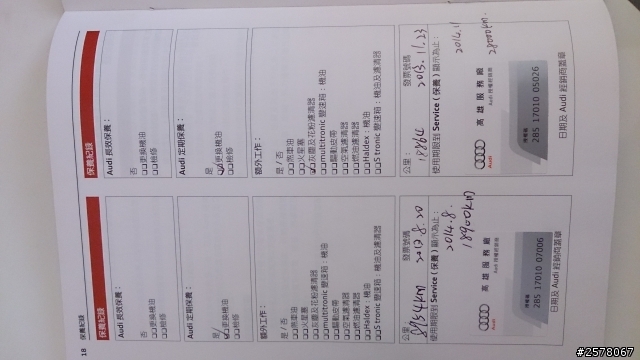 18 保養紀錄
保養紀錄
Audi 長效保養：
否
□□更換機油
□□檢修
Audi 定期保養：
是
□更換機油
□□檢修
額外工作：
是/否
□□煞車油
□□火星塞
□□灰塵及花粉濾清器
□□multitronic 變速箱：機油
□□驅動皮帶
□□空氣濾清器
□□燃油濾清器
□□Haldex：機油
□□S tronic 變速箱：機油及濾清器
公里： 發票號碼
8954KM 2013.8.20
使用期限到 Service（保養）顯示為止：
2014.8.
18900KM
Audi
高雄服務廠
Audi 授權經銷商
285 17010 07006
日期及 Audi 經銷商蓋章
保養紀錄
Audi 長效保養：
否
□□更換機油
□□檢修
Audi 定期保養：
是
□更換機油
□□檢修
額外工作：
是/否
□□煞車油
□□火星塞
□灰塵及花粉濾清器
□□multitronic 變速箱：機油
□□驅動皮帶
□□空氣濾清器
□□燃油濾清器
□□Haldex：機油
□□S tronic 變速箱：機油及濾清器
公里： 發票號碼
18864 2013.11.23
使用期限到 Service（保養）顯示為止：
2014.11
28000KM.
Audi
高雄服務廠
Audi 授權經銷商
285 17010 05026
日期及 Audi 經銷商蓋章
#2578067